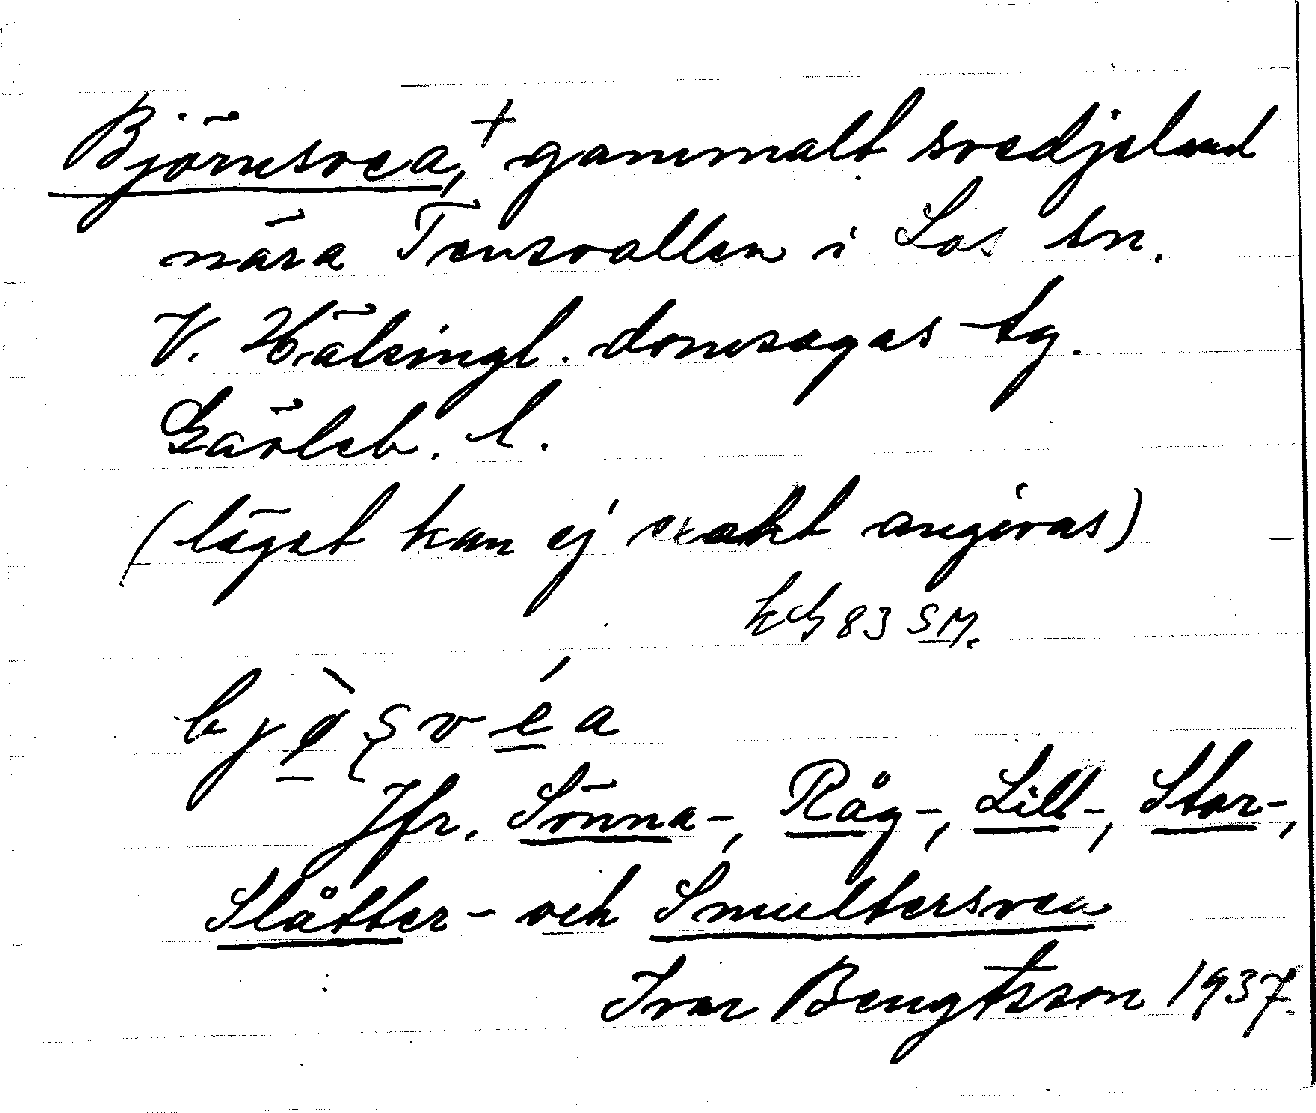 Björnsvea,+ gammalt svedjeland
nära Tensvallen i Los sn.
V. Hälsingl. domsagas tg.
Gävleb. l.
(läget kan ej exakt angivas)
83 SM.
bjø̀ʂvéa
Jfr. Sönna-, Råg-, Lill-, Stor-,
Slåtter- och Smultersvea
Ivar Bengtsson 1937.